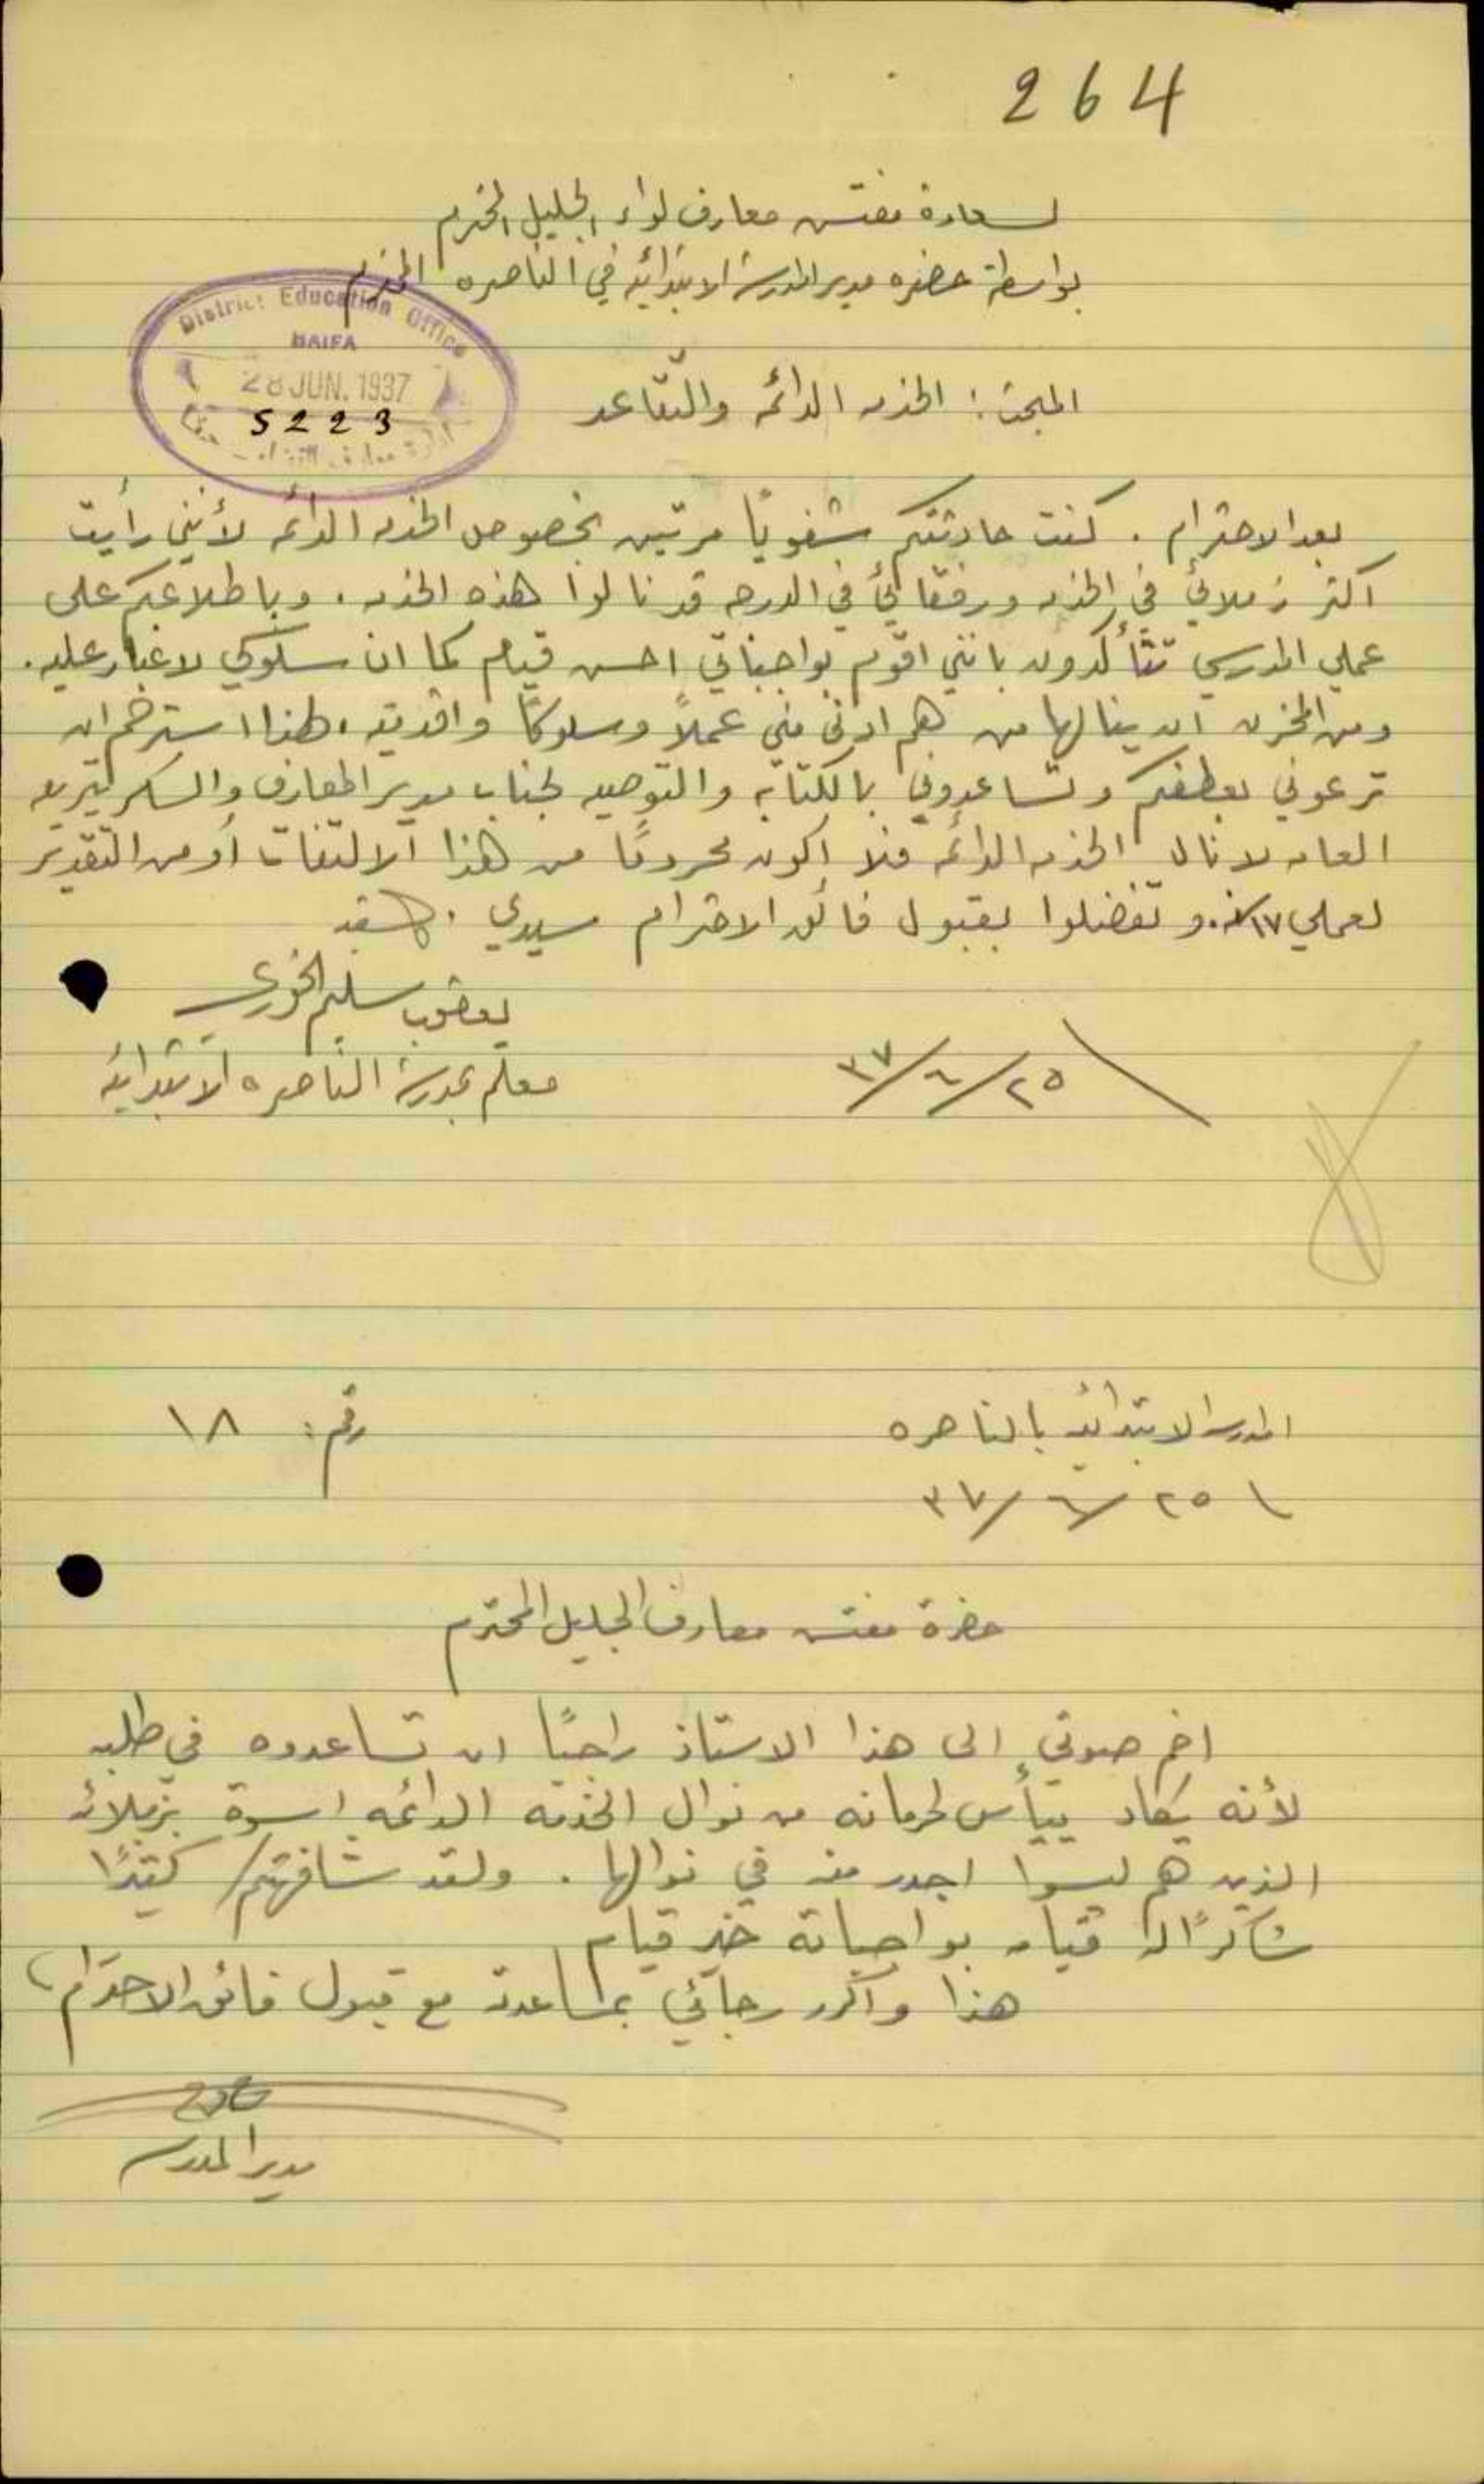 264
لسعادة مفتش معارف لواء الجليل المحترم
بواسطة حضره مدير المدرسة الابتدائيه في الناصره المحترم
District Education Office
HAIFA
28 JUN. 1937
5223
المبحث: الخدمه الدائمه والتقاعد
بعد الاحترام. كنت حادثتكم شفويًا مرتين بخصوص الخدمه الدائمه لأنني رأيت
اكثر زملائي في الخدمه ورفقائي في الدرجه قد نالوا هذه الخدمه. وباطلاعكم على
عملي المدرسي تتأكدون بانني اقوم بواجباتي احسن قيام كما ان سلوكي لا غبار عليه.
ومن المحزن ان ينالها من هم ادنى مني عملاً وسلوكًا واقدميه. لهذا استرحم ان
ترعوني بعطفكم وتساعدوني بالكتابه والتوصيه لجناب مدير المعارف والسكرتيريه
العامه لانال الخدمه الدائمه فلا اكون محرومًا من هذا الالتفات أو من التقدير
لعملي ١٧ سنه. وتفضلوا بقبول فائق الاحترام سيدي.
يعقوب سليم الخوري
معلم بمدرسة الناصره الابتدائيه
٢٥/٦/٣٧
المدرسه الابتدائيه بالناصره
رقم: ١٨
٢٥/٦/٣٧
حضرة مفتش معارف الجليل المحترم
اضم صوتي الى هذا الاستاذ راجيًا ان تساعدوه في طلبه
لأنه يكاد ييأس لحرمانه من نوال الخدمه الدائمه اسوة بزملائه
الذين هم ليسوا اجدر منه في نوالها. ولقد شافهتكم كثيرًا
شاكرًا له قيامه بواجباته خير قيام
هذا واكرر رجائي بمساعدته مع قبول فائق الاحترام،
مدير المدرسه